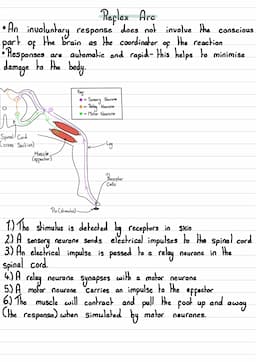 Reflex Arc
• An involuntary response does not involve the conscious
part of the brain as the coordinator of the reaction
• Responses are automatic and rapid - this helps to minimise
damage to the body.
Key
- Sensory Neurone
- Relay Neurone
- Motor Neurone
Spinal Cord
(cross section)
Muscle
(effector)
Leg
Receptor
Cells
Pin (stimulus)
1) The stimulus is detected by receptors in skin
2) A sensory neurone sends electrical impulses to the spinal cord
3) An electrical impulse is passed to a relay neurone in the
spinal cord.
4) A relay neurone synapses with a motor neurone
5) A motor neurone carries an impulse to the effector
6) The muscle will contract and pull the foot up and away
(the response) when stimulated by motor neurones.